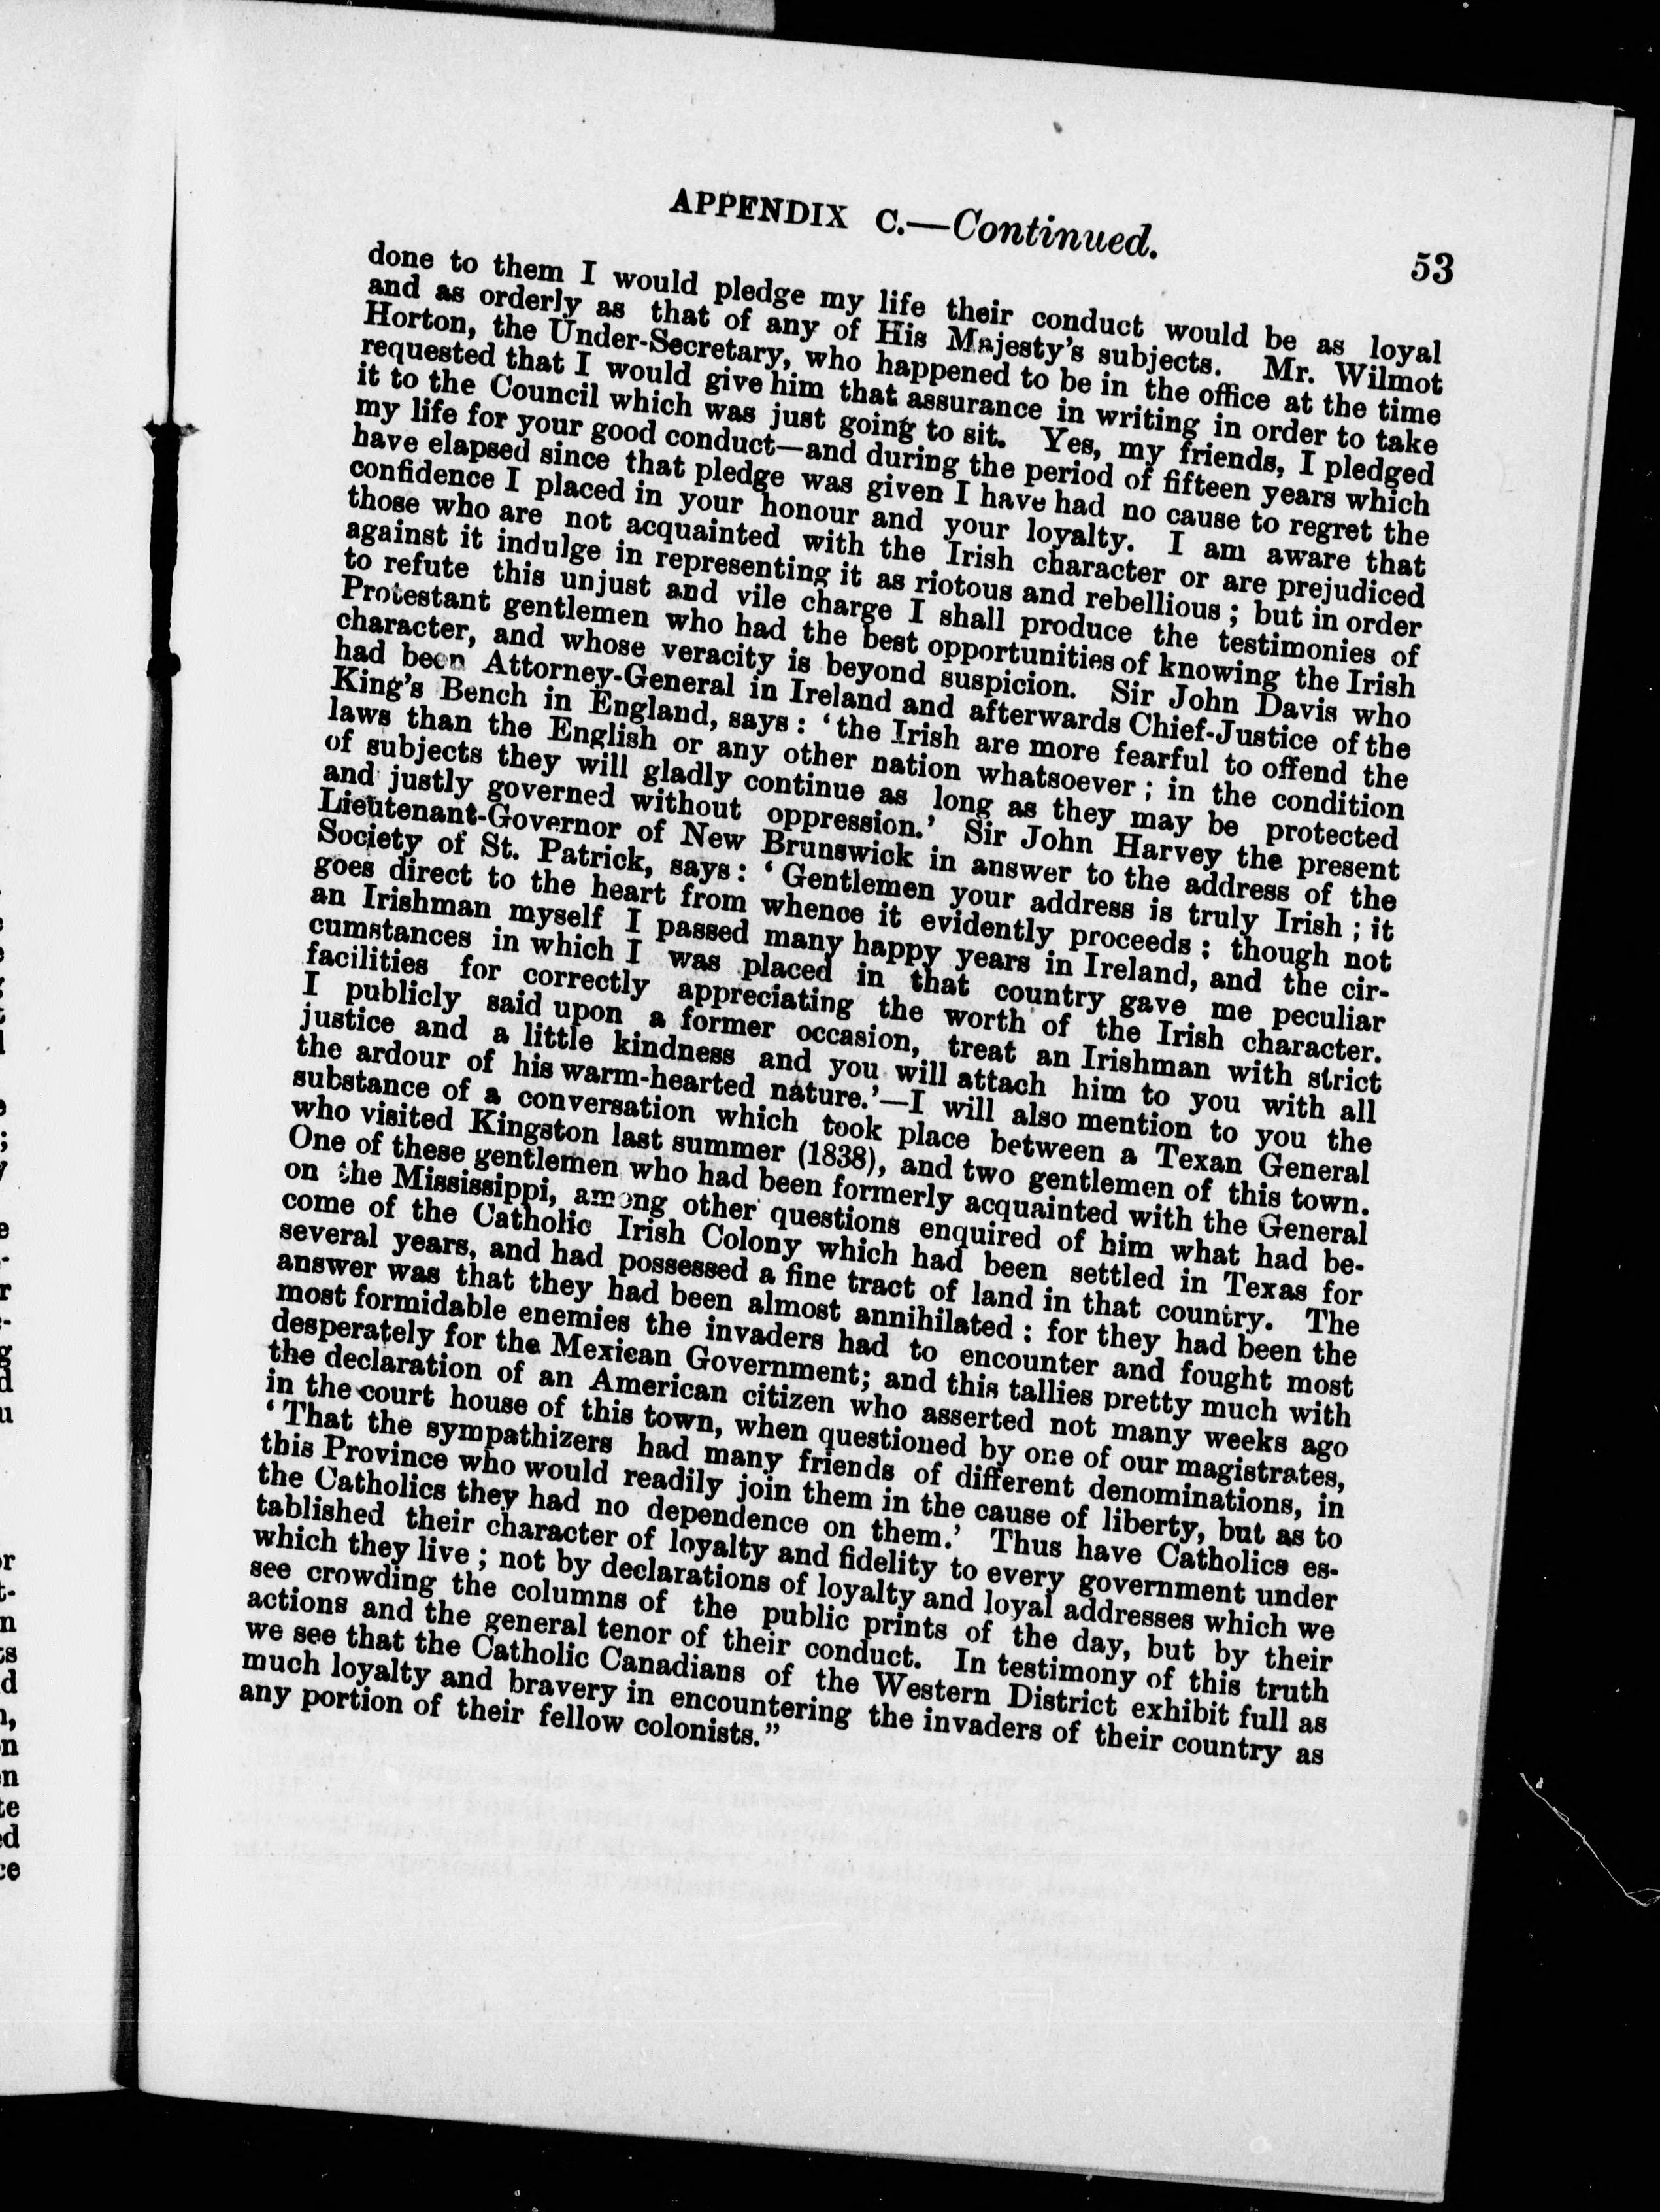 APPENDIX C.—Continued.
53
done to them I would pledge my life their conduct would be as loyal
and as orderly as that of any of His Majesty's subjects. Mr. Wilmot
Horton, the Under-Secretary, who happened to be in the office at the time
requested that I would give him that assurance in writing in order to take
it to the Council which was just going to sit. Yes, my friends, I pledged
my life for your good conduct—and during the period of fifteen years which
have elapsed since that pledge was given I have had no cause to regret the
confidence I placed in your honour and your loyalty. I am aware that
those who are not acquainted with the Irish character or are prejudiced
against it indulge in representing it as riotous and rebellious; but in order
to refute this unjust and vile charge I shall produce the testimonies of
Protestant gentlemen who had the best opportunities of knowing the Irish
character, and whose veracity is beyond suspicion. Sir John Davis who
had been Attorney-General in Ireland and afterwards Chief-Justice of the
King's Bench in England, says: 'the Irish are more fearful to offend the
laws than the English or any other nation whatsoever; in the condition
of subjects they will gladly continue as long as they may be protected
and justly governed without oppression.' Sir John Harvey the present
Lieutenant-Governor of New Brunswick in answer to the address of the
Society of St. Patrick, says: 'Gentlemen your address is truly Irish; it
goes direct to the heart from whence it evidently proceeds: though not
an Irishman myself I passed many happy years in Ireland, and the cir-
cumstances in which I was placed in that country gave me peculiar
facilities for correctly appreciating the worth of the Irish character.
I publicly said upon a former occasion, treat an Irishman with strict
justice and a little kindness and you will attach him to you with all
the ardour of his warm-hearted nature.'—I will also mention to you the
substance of a conversation which took place between a Texan General
who visited Kingston last summer (1838), and two gentlemen of this town.
One of these gentlemen who had been formerly acquainted with the General
on the Mississippi, among other questions enquired of him what had be-
come of the Catholic Irish Colony which had been settled in Texas for
several years, and had possessed a fine tract of land in that country. The
answer was that they had been almost annihilated: for they had been the
most formidable enemies the invaders had to encounter and fought most
desperately for the Mexican Government; and this tallies pretty much with
the declaration of an American citizen who asserted not many weeks ago
in the court house of this town, when questioned by one of our magistrates,
'That the sympathizers had many friends of different denominations, in
this Province who would readily join them in the cause of liberty, but as to
the Catholics they had no dependence on them.' Thus have Catholics es-
tablished their character of loyalty and fidelity to every government under
which they live; not by declarations of loyalty and loyal addresses which we
see crowding the columns of the public prints of the day, but by their
actions and the general tenor of their conduct. In testimony of this truth
we see that the Catholic Canadians of the Western District exhibit full as
much loyalty and bravery in encountering the invaders of their country as
any portion of their fellow colonists."